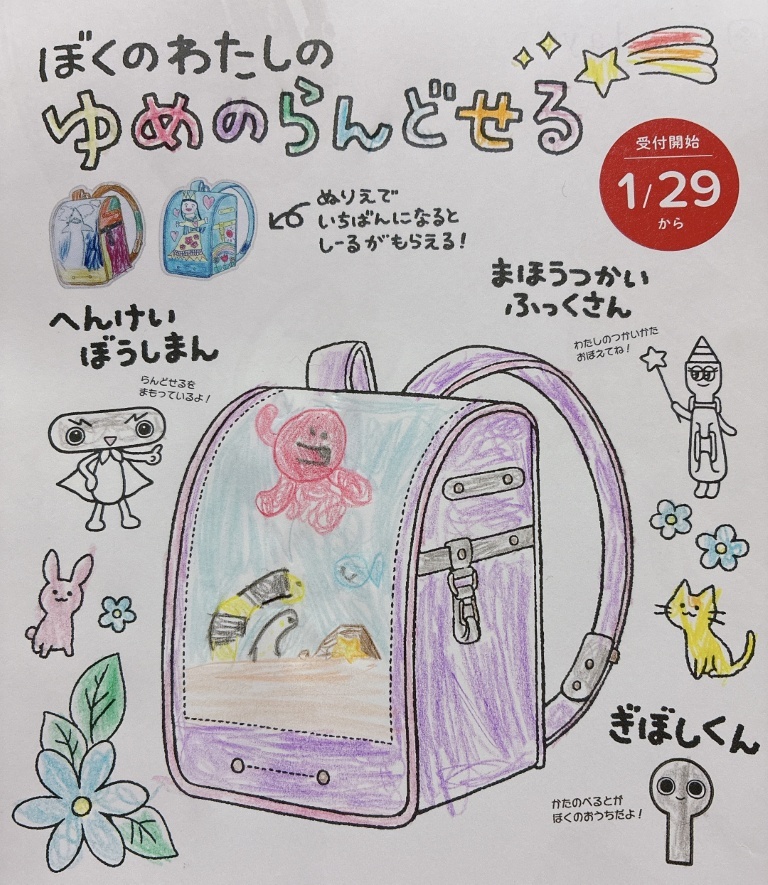 ぼくのわたしの
ゆめのらんどせる
受付開始
1/29
から
ぬりえで
いちばんになると
しーるがもらえる!
まほうつかい
ふっくさん
わたしのつかいかた
おぼえてね!
へんけい
ぼうしまん
らんどせるを
まもっているよ!
ぎぼしくん
かたのべるとが
ぼくのおうちだよ!